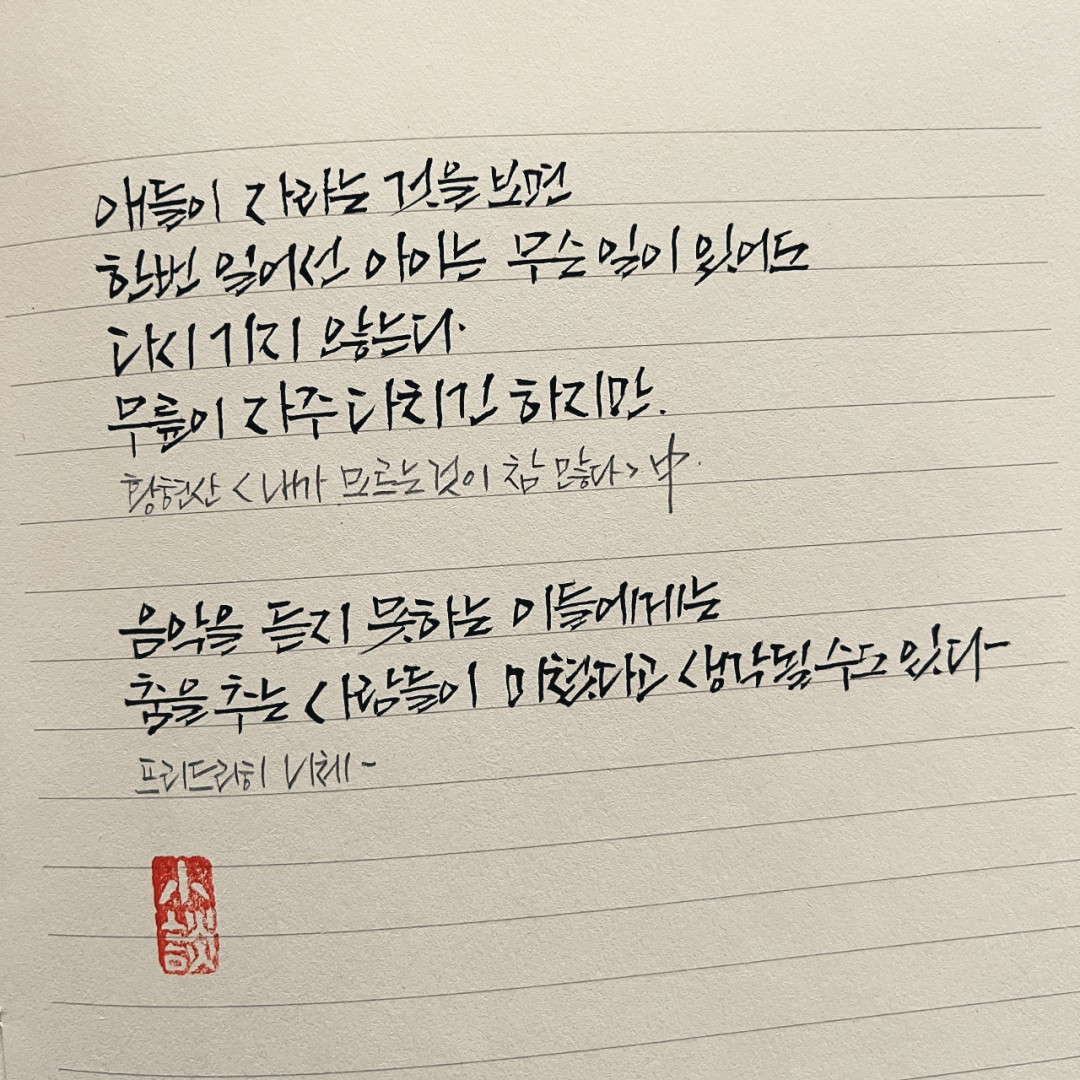 애들이 자라는 것을 보면
한번 일어선 아이는 무슨 일이 있어도
다시 기지 않는다.
무릎이 자주 다치긴 하지만.
황현산 <내가 모르는 것이 참 많다> 中.
음악을 듣지 못하는 이들에게는
춤을 추는 사람들이 미쳤다고 생각될 수도 있다-
프리드리히 니체-
小談